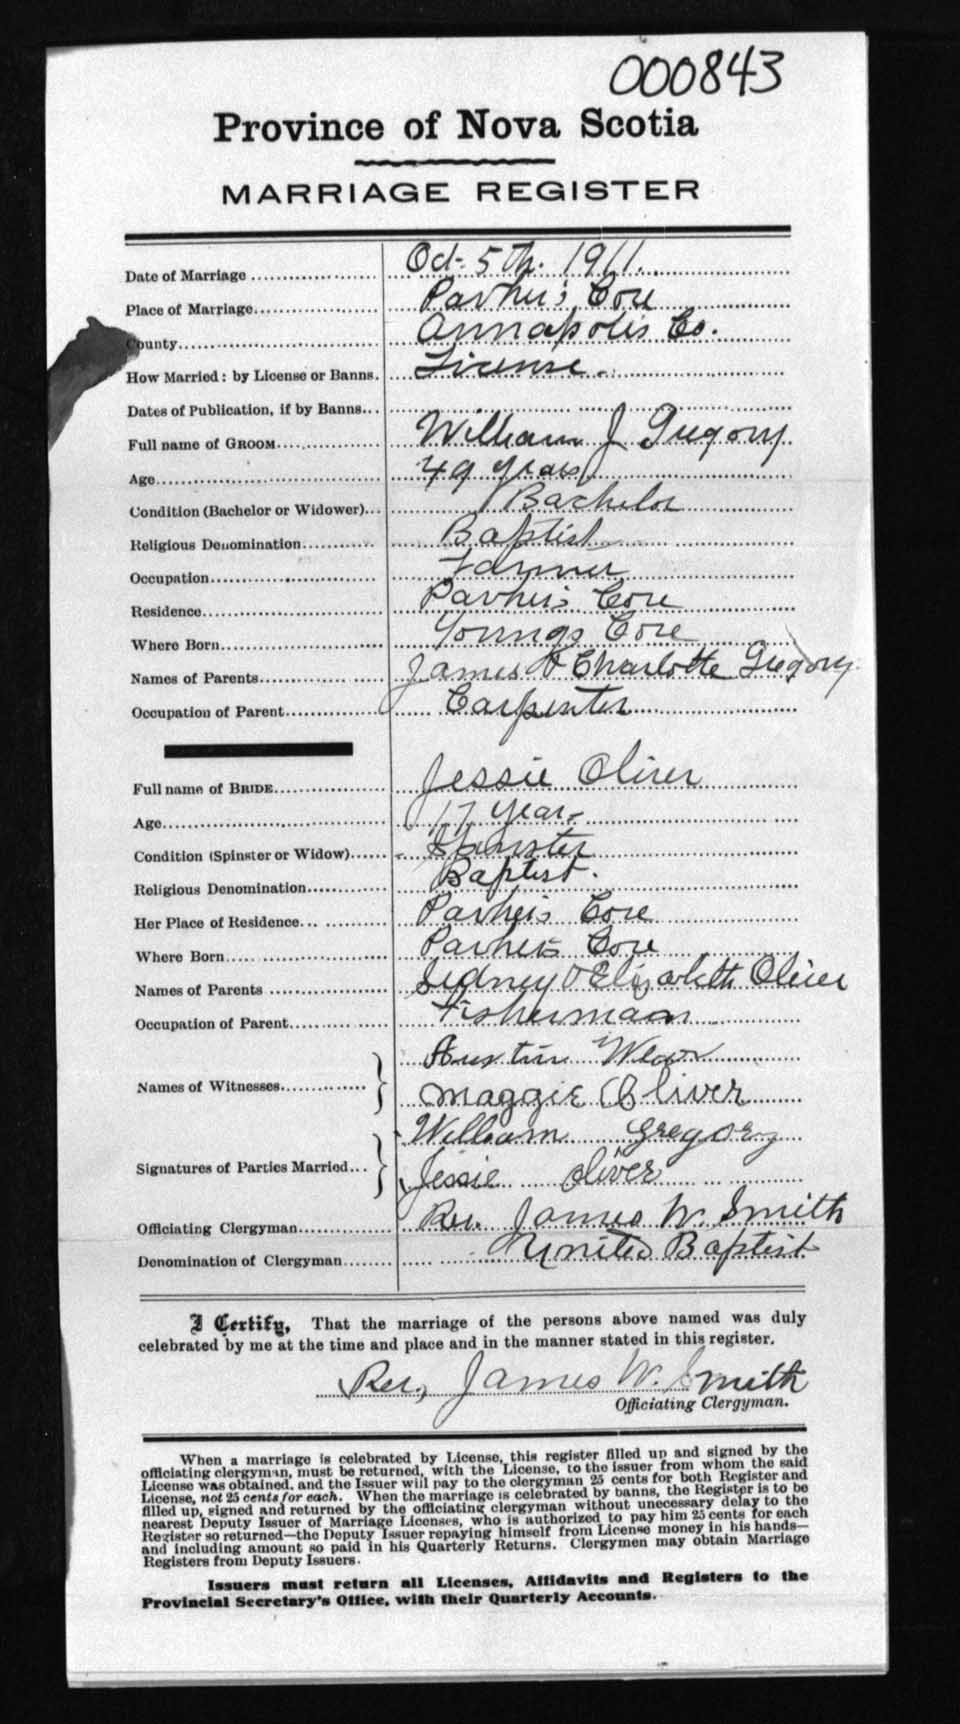 000843
Province of Nova Scotia
MARRIAGE REGISTER
Date of Marriage Oct. 5th. 1911.
Place of Marriage Parker's Cove
County Annapolis Co.
How Married: by License or Banns. License.
Dates of Publication, if by Banns
Full name of GROOM William J Gregory
Age 49 years
Condition (Bachelor or Widower) Bachelor
Religious Denomination Baptist
Occupation Farmer
Residence Parker's Cove
Where Born Youngs Cove
Names of Parents James & Charlotte Gregory
Occupation of Parent Carpenter
Full name of BRIDE Jessie Oliver
Age 17 years
Condition (Spinster or Widow) Spinster
Religious Denomination Baptist.
Her Place of Residence Parker's Cove
Where Born Parker's Cove
Names of Parents Sidney & Elizabeth Oliver
Occupation of Parent Fisherman
Names of Witnesses Austin
Maggie Oliver
William Gregory
Signatures of Parties Married
Jessie Oliver
Officiating Clergyman Rev. James W. Smith
Denomination of Clergyman United Baptist
I Certify, That the marriage of the persons above named was duly
celebrated by me at the time and place and in the manner stated in this register.
Rev. James W. Smith
Officiating Clergyman.
When a marriage is celebrated by License, this register filled up and signed by the
officiating clergyman, must be returned, with the License, to the issuer from whom the said
License was obtained, and the Issuer will pay to the clergyman 25 cents for both Register and
License, not 25 cents for each. When the marriage is celebrated by banns, the Register is to be
filled up, signed and returned by the officiating clergyman without unnecessary delay to the
nearest Deputy Issuer of Marriage Licenses, who is authorized to pay him 25 cents for each
Register so returned—the Deputy Issuer repaying himself from License money in his hands—
and including amount so paid in his Quarterly Returns. Clergymen may obtain Marriage
Registers from Deputy Issuers.
Issuers must return all Licenses, Affidavits and Registers to the
Provincial Secretary's Office, with their Quarterly Accounts.